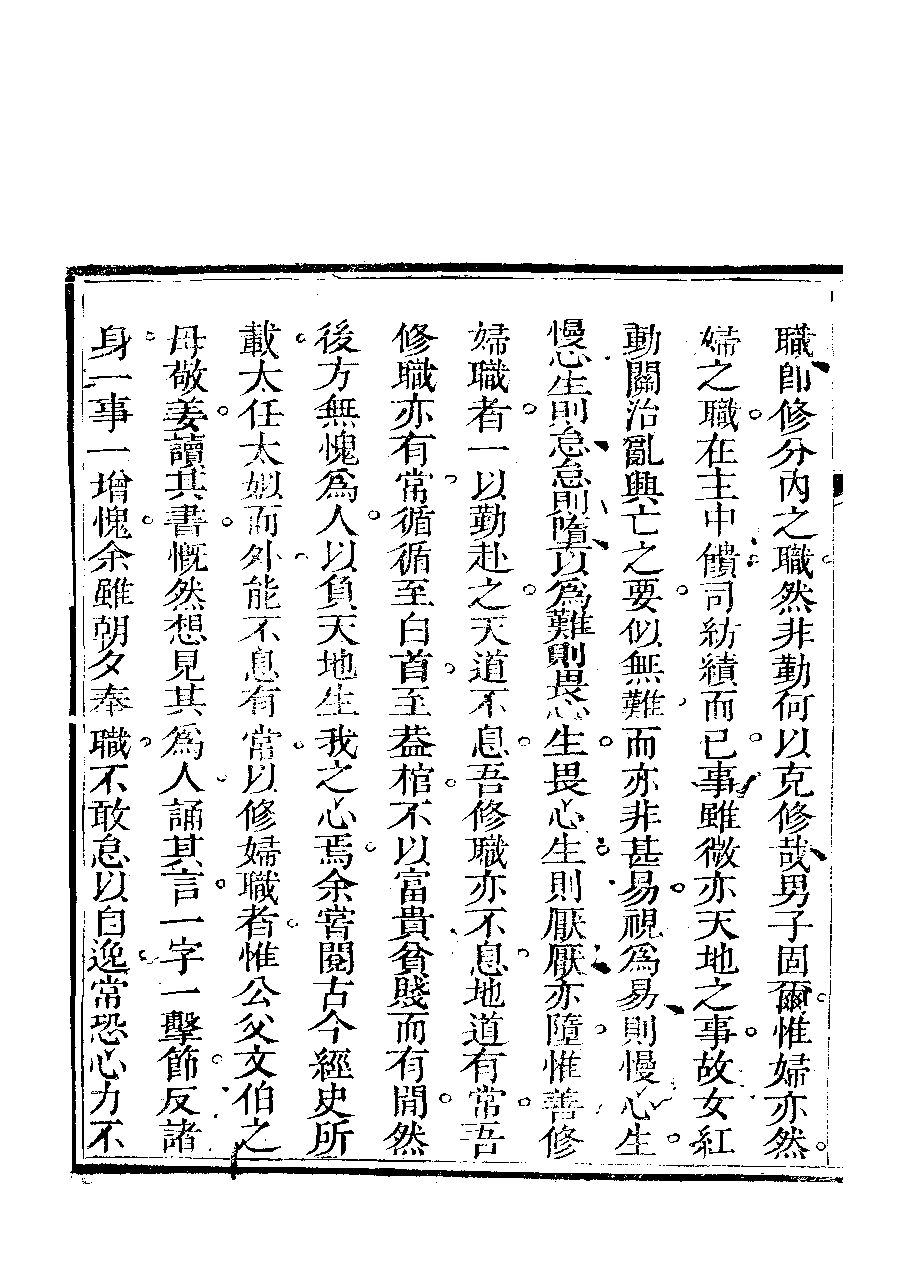 職卽修分內之職然非勤何以克修哉男子固爾惟婦亦然
婦之職在主中饋司紡績而已事雖微亦天地之事故女紅
動關治亂興亡之要似無難而亦非甚易視為易則慢心生
慢心生則怠怠則墮以為難則畏心生畏心生則厭厭亦隨惟善修
婦職者一以勤赴之天道不息吾修職亦不息地道有常吾
修職亦有常循循至白首至葢棺不以富貴貧賤而有間然
後方無愧為人以負天地生我之心焉余嘗閱古今經史所
載太任太姒而外能不息有常以修婦職者惟公父文伯之
母敬姜讀其書慨然想見其為人誦其言一字一擊節反諸
身一事一增愧余雖朝夕奉職不敢怠以自逸常恐心力不